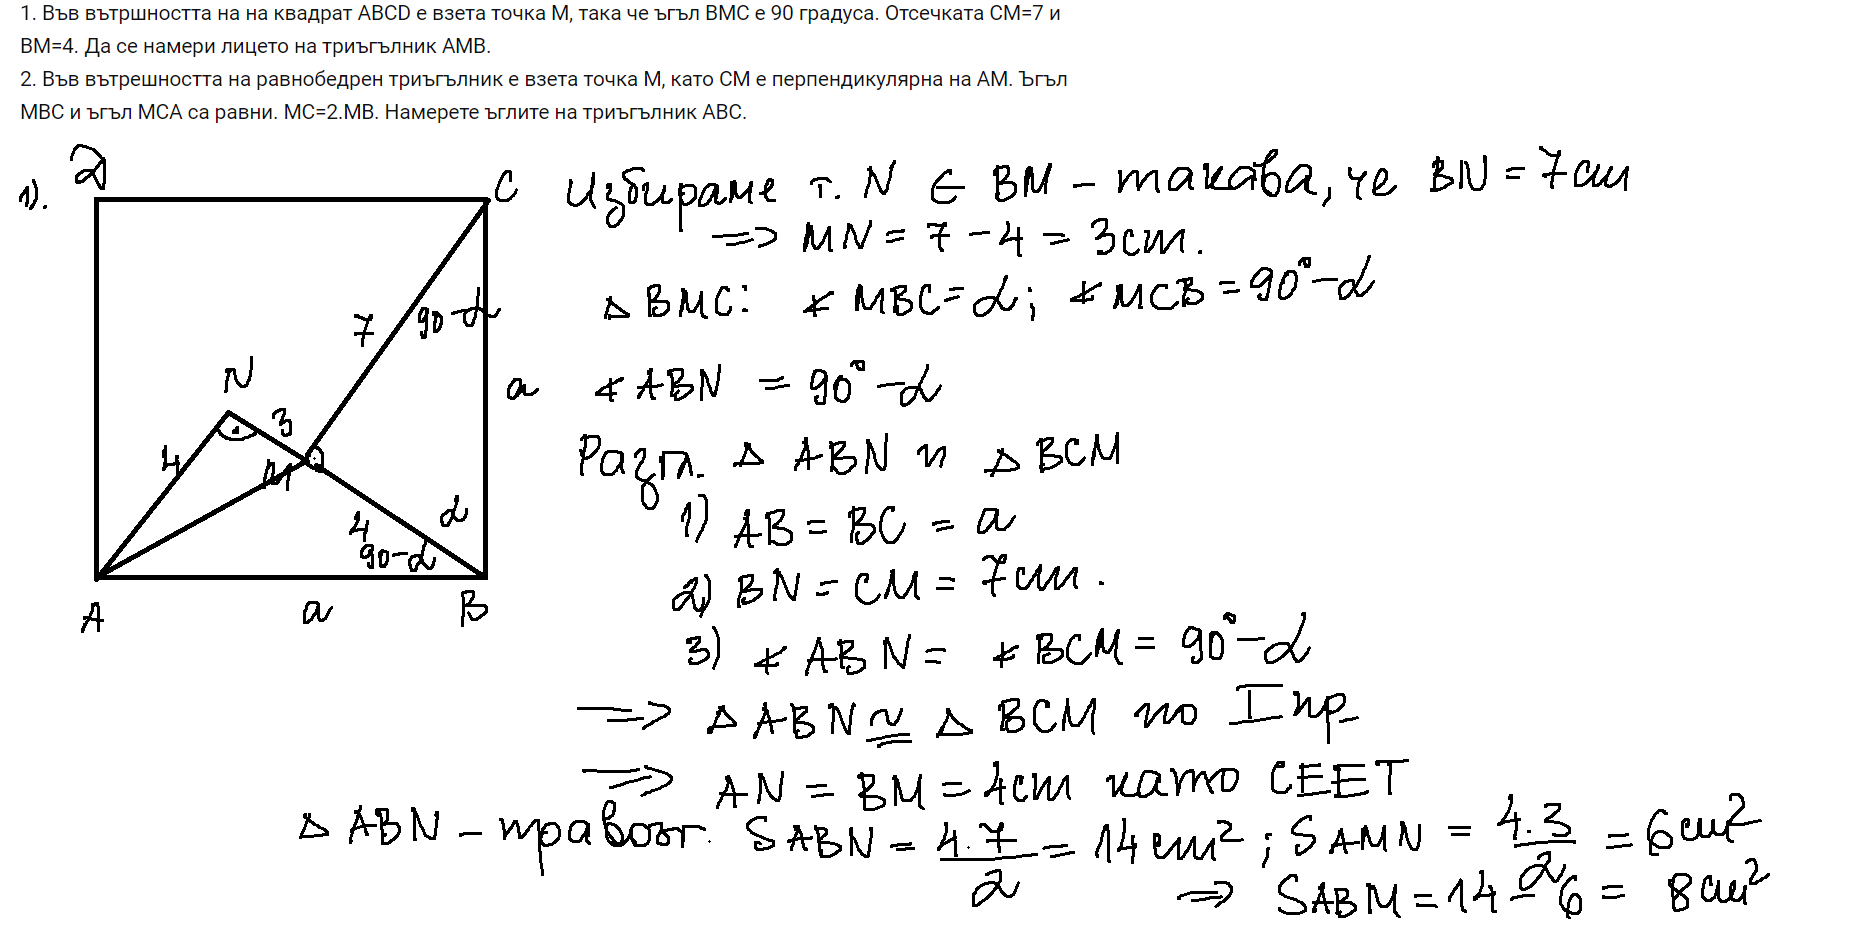 1. Във вътршността на на квадрат ABCD е взета точка M, така че ъгъл BMC е 90 градуса. Отсечката CM=7 и
BM=4. Да се намери лицето на триъгълник AMB.
2. Във вътрешността на равнобедрен триъгълник е взета точка M, като CM е перпендикулярна на AM. Ъгъл
MBC и ъгъл MCA са равни. MC=2.MB. Намерете ъглите на триъгълник ABC.
1).
D
C
Избираме т. N ∈ BM - такава, че BN = 7cm
=> MN = 7 - 4 = 3cm.
△ BMC: ∢ MBC = α; ∢ MCB = 90° - α
7
90-α
N
a
∢ ABN = 90° - α
3
4
M
Разгл. △ ABN и △ BCM
1) AB = BC = a
4
α
90-α
2) BN = CM = 7cm.
A
a
B
3) ∢ ABN = ∢ BCM = 90° - α
=> △ ABN ≅ △ BCM по I пр.
=> AN = BM = 4cm като СЕЕТ
△ ABN - правоъг. SABN = 4.7/2 = 14cm²; SAMN = 4.3/2 = 6cm²
=> SABM = 14 - 6 = 8cm²